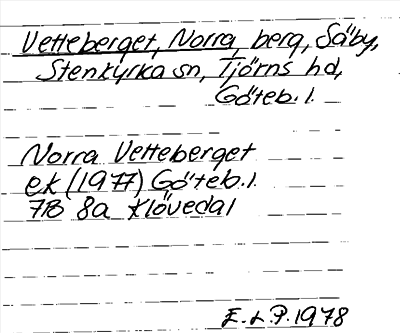 Vetteberget, Norra, berg, Säby,
Stenkyrka sn, Tjörns hd,
Göteb. l.
Norra Vetteberget
ek (1977) Göteb. l.
7B 8a Klövedal
E. L P. 1978